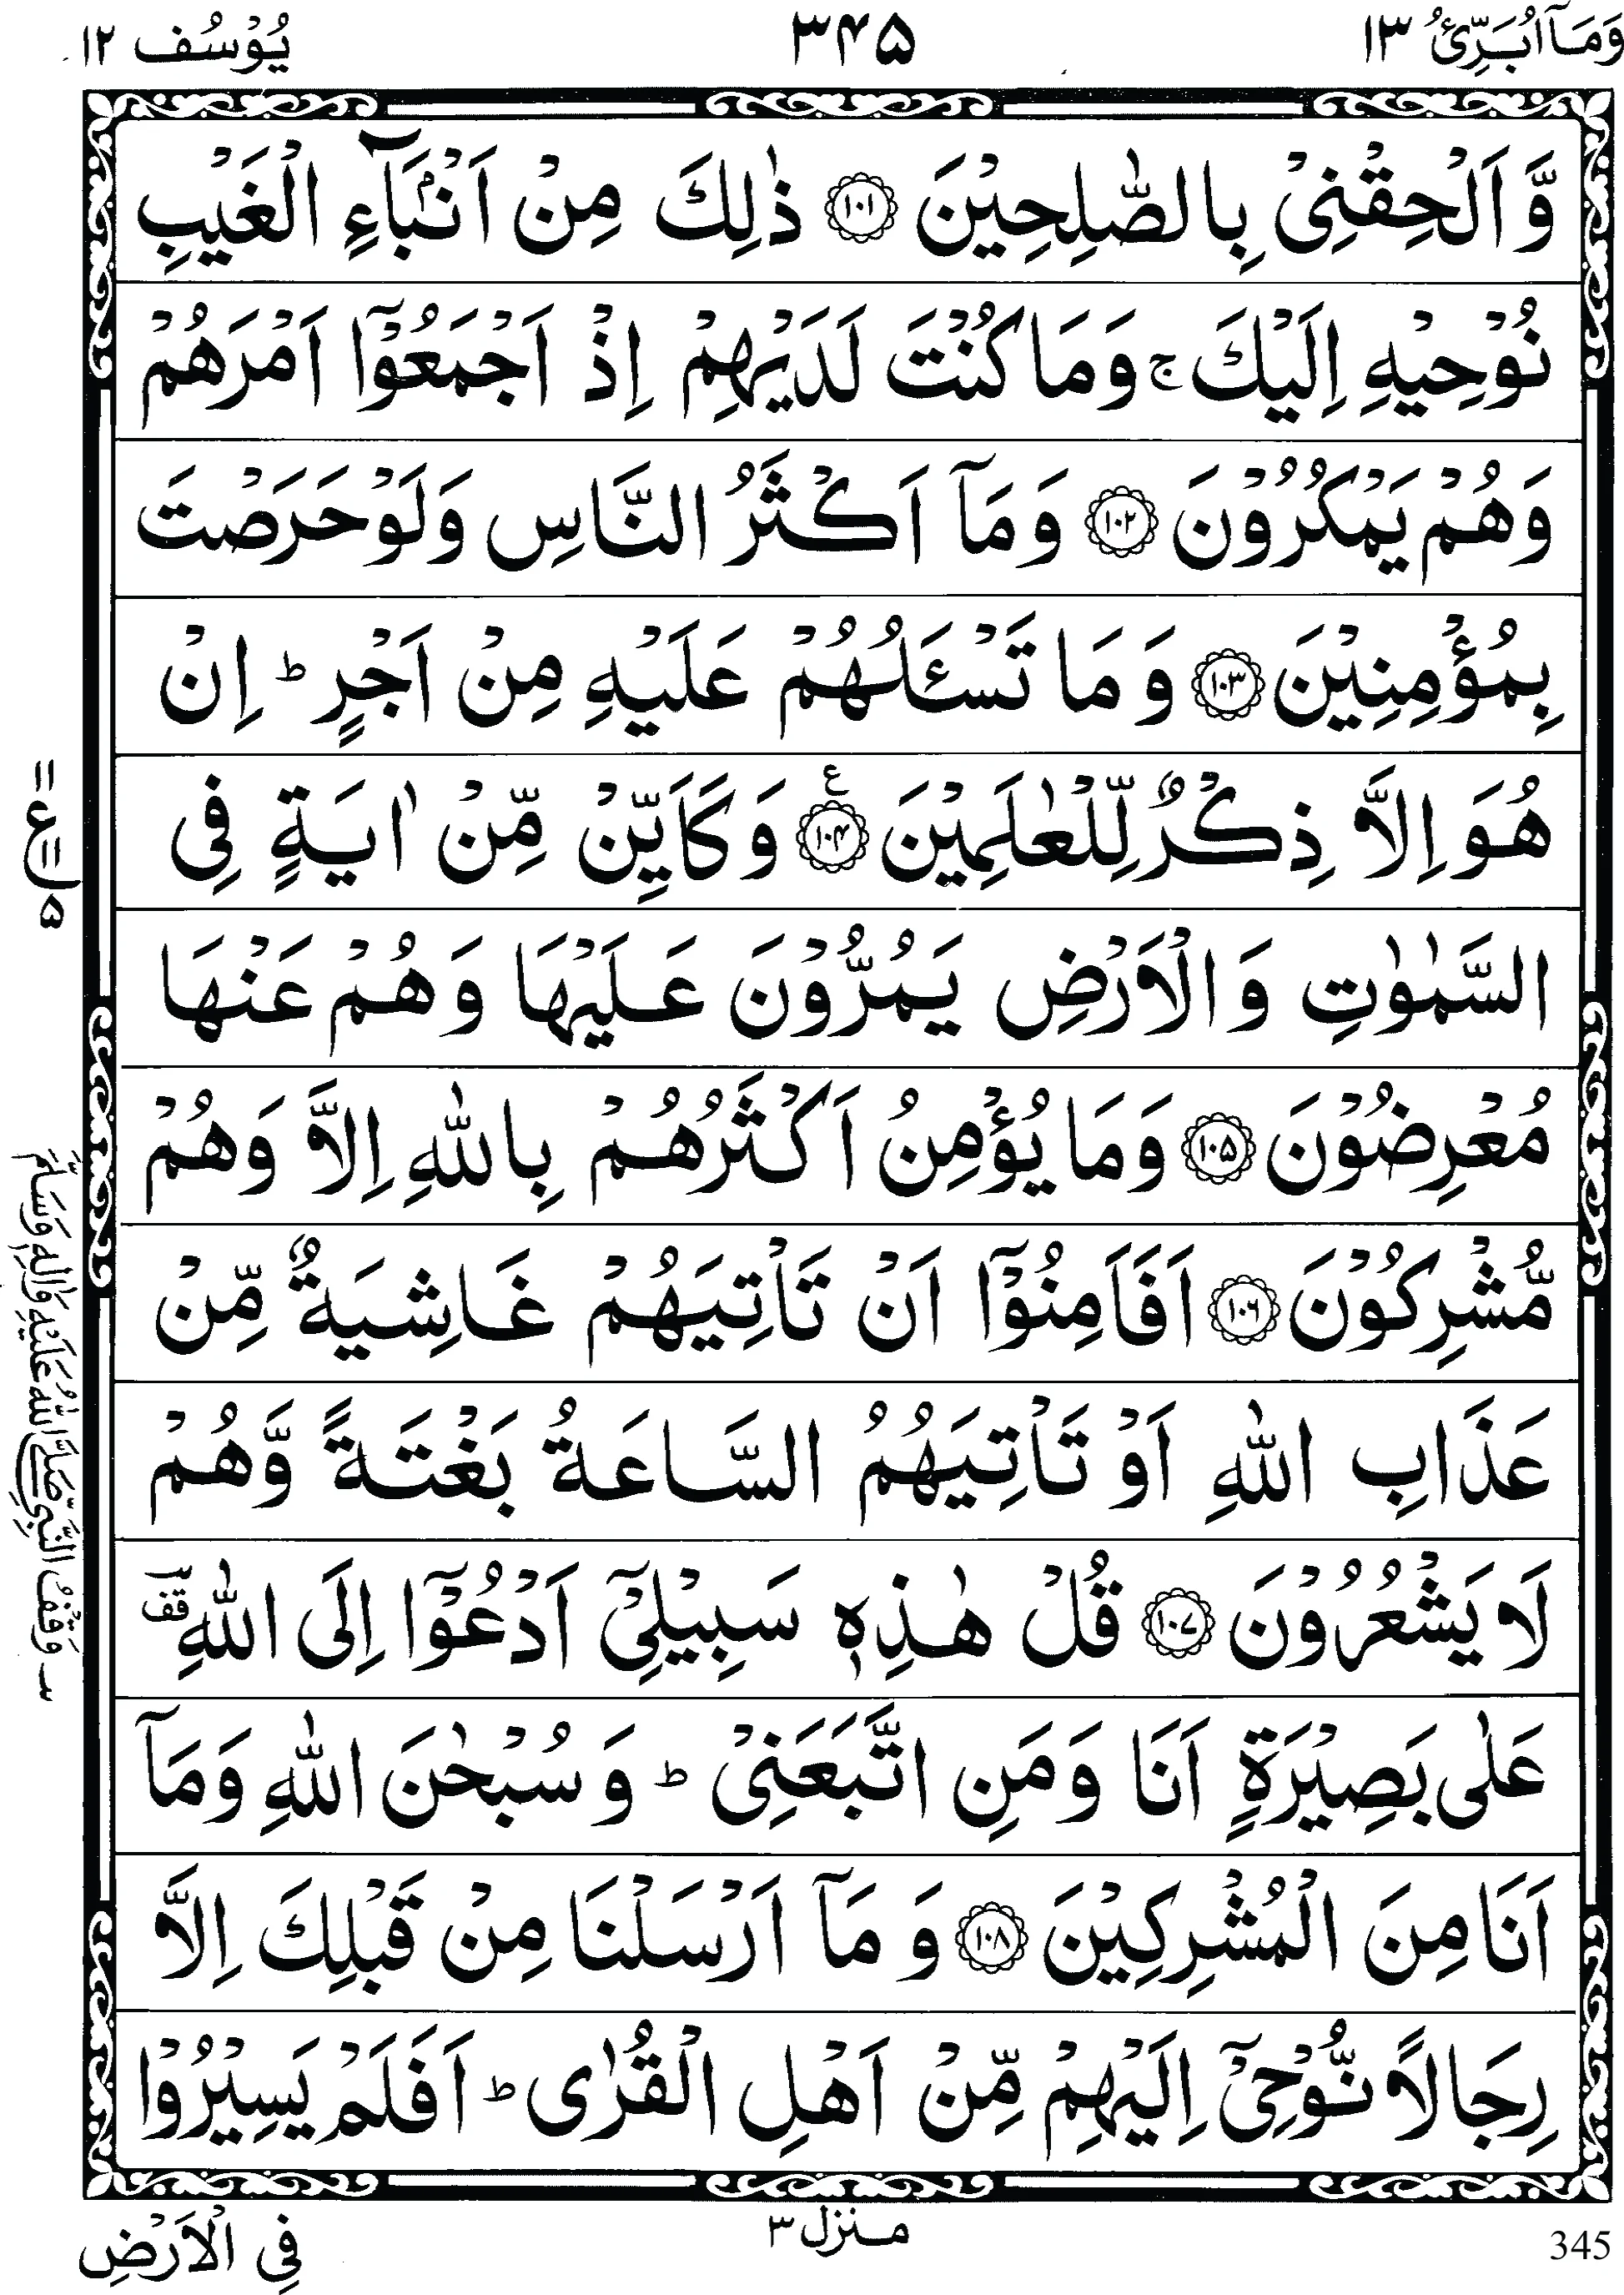 وَمَاۤ اُبَرِّئُ ١٣
٣۴۵
يُوْسُف ١٢
وَّ اَلْحِقْنِیْ بِالصّٰلِحِیْنَ ﴿۱۰۱﴾ ذٰلِكَ مِنْ اَنْۢبَآءِ الْغَیْبِ
نُوْحِیْهِ اِلَیْكَ ۚ وَمَا كُنْتَ لَدَیْهِمْ اِذْ اَجْمَعُوْۤا اَمْرَهُمْ
وَهُمْ یَمْكُرُوْنَ ﴿۱۰۲﴾ وَمَاۤ اَكْثَرُ النَّاسِ وَلَوْ حَرَصْتَ
بِمُؤْمِنِیْنَ ﴿۱۰۳﴾ وَمَا تَسْـَٔلُهُمْ عَلَیْهِ مِنْ اَجْرٍ ؕ اِنْ
هُوَ اِلَّا ذِكْرٌ لِّلْعٰلَمِیْنَ ﴿۱۰۴﴾ ع وَكَاَیِّنْ مِّنْ اٰیَةٍ فِی
السَّمٰوٰتِ وَالْاَرْضِ یَمُرُّوْنَ عَلَیْهَا وَهُمْ عَنْهَا
مُعْرِضُوْنَ ﴿۱۰۵﴾ وَمَا یُؤْمِنُ اَكْثَرُهُمْ بِاللّٰهِ اِلَّا وَهُمْ
مُّشْرِكُوْنَ ﴿۱۰۶﴾ اَفَاَمِنُوْۤا اَنْ تَاْتِیَهُمْ غَاشِیَةٌ مِّنْ
عَذَابِ اللّٰهِ اَوْ تَاْتِیَهُمُ السَّاعَةُ بَغْتَةً وَّهُمْ
لَا یَشْعُرُوْنَ ﴿۱۰۷﴾ قُلْ هٰذِهٖ سَبِیْلِیْۤ اَدْعُوْۤا اِلَی اللّٰهِ ؔقف
عَلٰی بَصِیْرَةٍ اَنَا وَمَنِ اتَّبَعَنِیْ ؕ وَسُبْحٰنَ اللّٰهِ وَمَاۤ
اَنَا مِنَ الْمُشْرِكِیْنَ ﴿۱۰۸﴾ وَمَاۤ اَرْسَلْنَا مِنْ قَبْلِكَ اِلَّا
رِجَالًا نُّوْحِیْۤ اِلَیْهِمْ مِّنْ اَهْلِ الْقُرٰی ؕ اَفَلَمْ یَسِیْرُوْا
۱۱
ع
۱۱
۵
وَقْفُ النَّبِیِّ صَلَّی اللّٰهُ عَلَیْهِ وَاٰلِهٖ وَسَلَّمَ
منزل ٣
فِی الْاَرْضِ
345